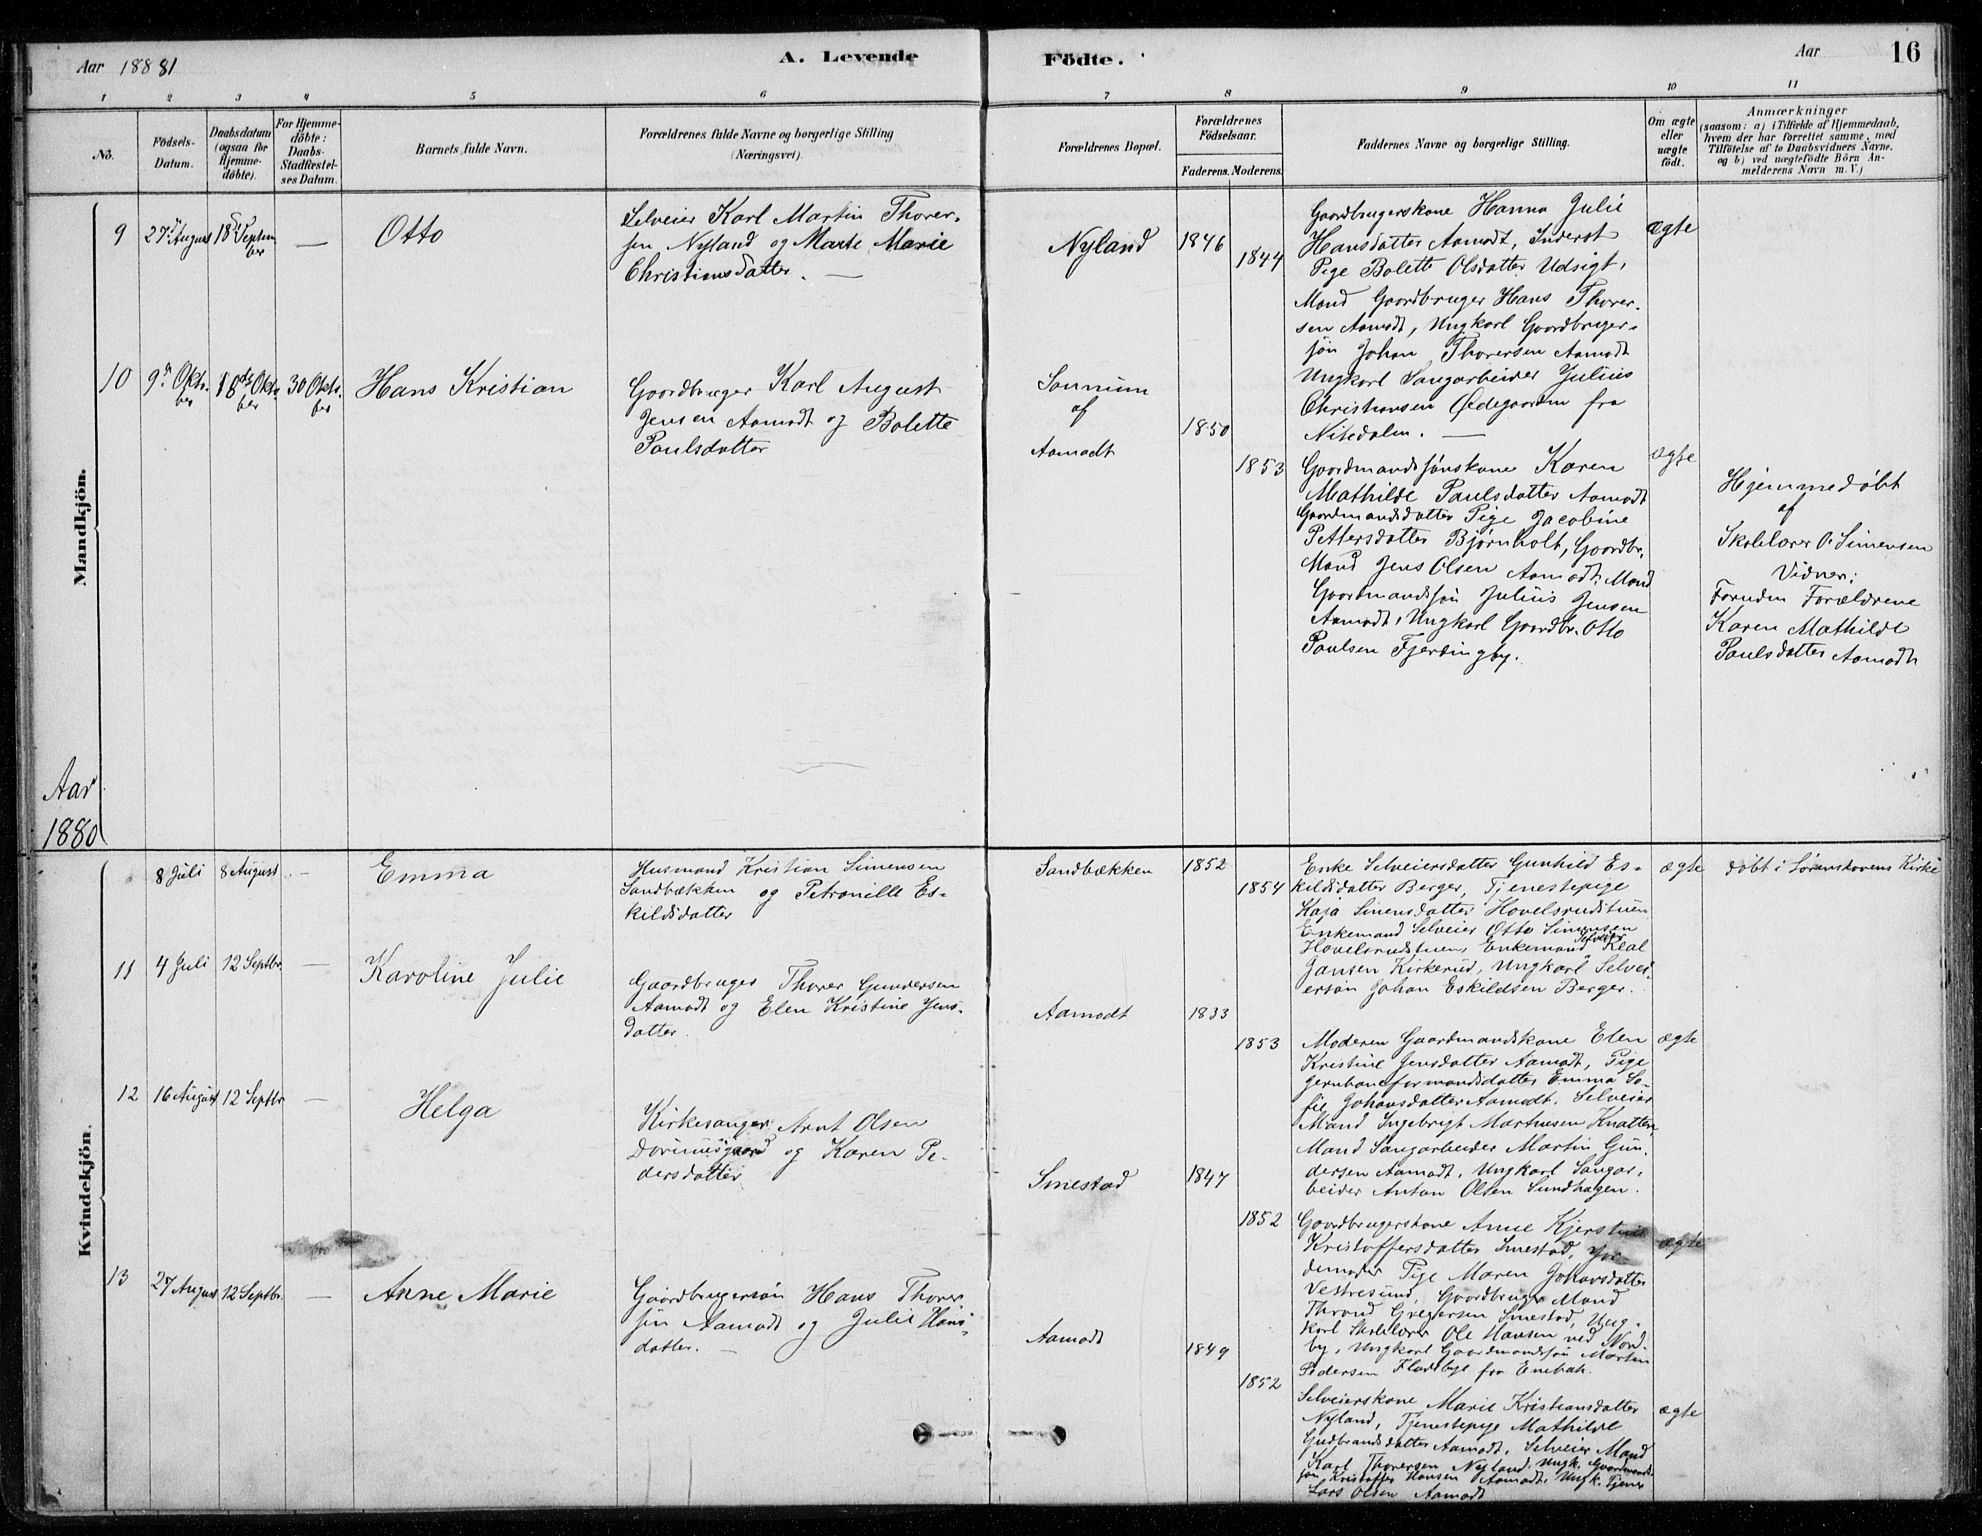 Aar 18881
A. Levende
Födte.
Aar
16
1 2 3 4 5 6 7 8 9 10 11
No.
Födsels-
Datum.
Daabsdatum
(ogsaa for
Hjemme-
döbte).
For Hjemme-
döbte:
Daabs-
Stadfæstel-
ses Datum.
Barnets fulde Navn.
Forældrenes fulde Navne og borgerlige Stilling
(Næringsvei).
Forældrenes Bopæl.
Forældrenes
Födselsaar.
Faderens. Moderens.
Faddernes Navne og borgerlige Stilling.
Om ægte
eller
uægte
födt.
Anmærkninger
(saasom: a) i Tilfælde af Hjemmedaab,
hvem der har forrettet samme, med
Tilföielse af to Daabsvidners Navne.
og b) ved uægtefödte Börn An-
melderens Navn m. V.)
Mandkjön.
9
27 August
18 Septem
ber
—
Otto
Selveier Karl Martin Thorer-
sen Nyland og Marte Marie
Christiansdatter. —
Nyland
1846
1844
Gaardbrugerskone Hanna Julie
Hansdatter Aamodt, Inderst
Pige Bolette Olsdatter Udsigt,
Mand Gaardbruger Hans Thorer-
sen Aamodt, Ungkarl Gaardbruger-
søn Johan Thorersen Aamodt
Ungkarl Saugarbeider Julius
Christiansen Ødegaarden fra
Nitedalen. —
ægte
10
9 Okto-
ber
18de Okto-
ber
30 Okto-
ber
Hans Kristian
Gaardbruger Karl August
Jensen Aamodt og Bolette
Paulsdatter
Sannum
af
Aamodt
1850
1853
Gaardmandssønskone Karen
Mathilde Paulsdatter Aamodt
Gaardmandsdatter Pige Jacobine
Pettersdatter Bjørnholt, Gaardbr.
Mand Jens Olsen Aamodt, Mand
Gaardmandssøn Julius Jensen
Aamodt, Ungkarl Gaardbr. Otto
Paulsen Fjerdingby.
ægte
Hjemmedøbt
af
Skolelærer O. Simensen
Vidner:
Foruden Forældrene
Karen Mathilde
Paulsdatter Aamodt
Aar
1880
Kvindekjön.
8 Juli
8 August
—
Emma
Husmand Kristian Simensen
Sandbækken og Petronille Es-
kildsdatter
Sandbækken
1852
1854
Enke Selveiersdatter Gunhild Es-
kildsdatter Berger, Tjenestepige
Kaja Simensdatter Hovelsrudstuen
Enkemand Selveier Otto Simensen
Hovelsrudstuen, Enkemand Selveier
Jansen Kirkerud, Ungkarl Selvei-
ersøn Johan Eskildsen Berger.
ægte
døbt i Sørenskovens Kirke
11
4 Juli
12 Septbr.
—
Karoline Julie
Gaardbruger Thorer Gundersen
Aamodt og Elen Kristine Jens-
datter.
Aamodt
1833
1853
Moderen Gaardmandskone Elen
Kristine Jensdatter Aamodt, Pige
jernbaneformandsdatter Emma So-
fie Johansdatter Aamodt. Selveier
Mand Ingebrigt Martinsen Knatten,
Mand Saugarbeider Martin Gun-
dersen Aamodt, Ungkarl Saugar-
beider Anton Olsen Sundhagen.
ægte
12
16 August
12 Septbr.
—
Helga
Kirkesanger Arnt Olsen
og Karen Pe-
dersdatter
Smestad
1847
1852
Gaardbrugerskone Anne Kjerstine
Kristoffersdatter Smestad,
Pige Maren Johansdatter
Vestresund, Gaardbruger Mand
Thrond Gregersen Smestad, Ung-
karl Skolelærer Ole Hansen ved Nord-
by, Ungkarl Gaardmandssøn Martin
Pedersen Fladebye fra Enebak.
ægte
13
27 August
12 Septbr.
—
Anne Marie
Gaardbrugersøn Hans Thorer
sen Aamodt og Julie Hans-
datter. —
Aamodt
1849
1852
Selveierskone Marie Kristiansdatter
Nyland, Tjenestepige Mathilde
Gudbrandsdatter Aamodt. Selveier Mand
Karl Thorersen Nyland, Ungk. Gaardmands-
søn Kristoffer Hansen Aamodt. Ungk. Tjener
Lars Olsen Aamodt
ægte